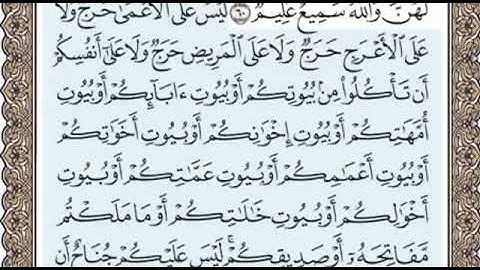 لَهُنَّ وَٱللَّهُ سَمِيعٌ عَلِيمٌ ٦٠ لَّيْسَ عَلَى ٱلْأَعْمَىٰ حَرَجٌ وَلَا
عَلَى ٱلْأَعْرَجِ حَرَجٌ وَلَا عَلَى ٱلْمَرِيضِ حَرَجٌ وَلَا عَلَىٰٓ أَنفُسِكُمْ
أَن تَأْكُلُوا۟ مِنۢ بُيُوتِكُمْ أَوْ بُيُوتِ ءَابَآئِكُمْ أَوْ بُيُوتِ
أُمَّهَٰتِكُمْ أَوْ بُيُوتِ إِخْوَٰنِكُمْ أَوْ بُيُوتِ أَخَوَٰتِكُمْ
أَوْ بُيُوتِ أَعْمَٰمِكُمْ أَوْ بُيُوتِ عَمَّٰتِكُمْ أَوْ بُيُوتِ
أَخْوَٰلِكُمْ أَوْ بُيُوتِ خَٰلَٰتِكُمْ أَوْ مَا مَلَكْتُم
مَّفَاتِحَهُۥٓ أَوْ صَدِيقِكُمْ ۚ لَيْسَ عَلَيْكُمْ جُنَاحٌ أَن